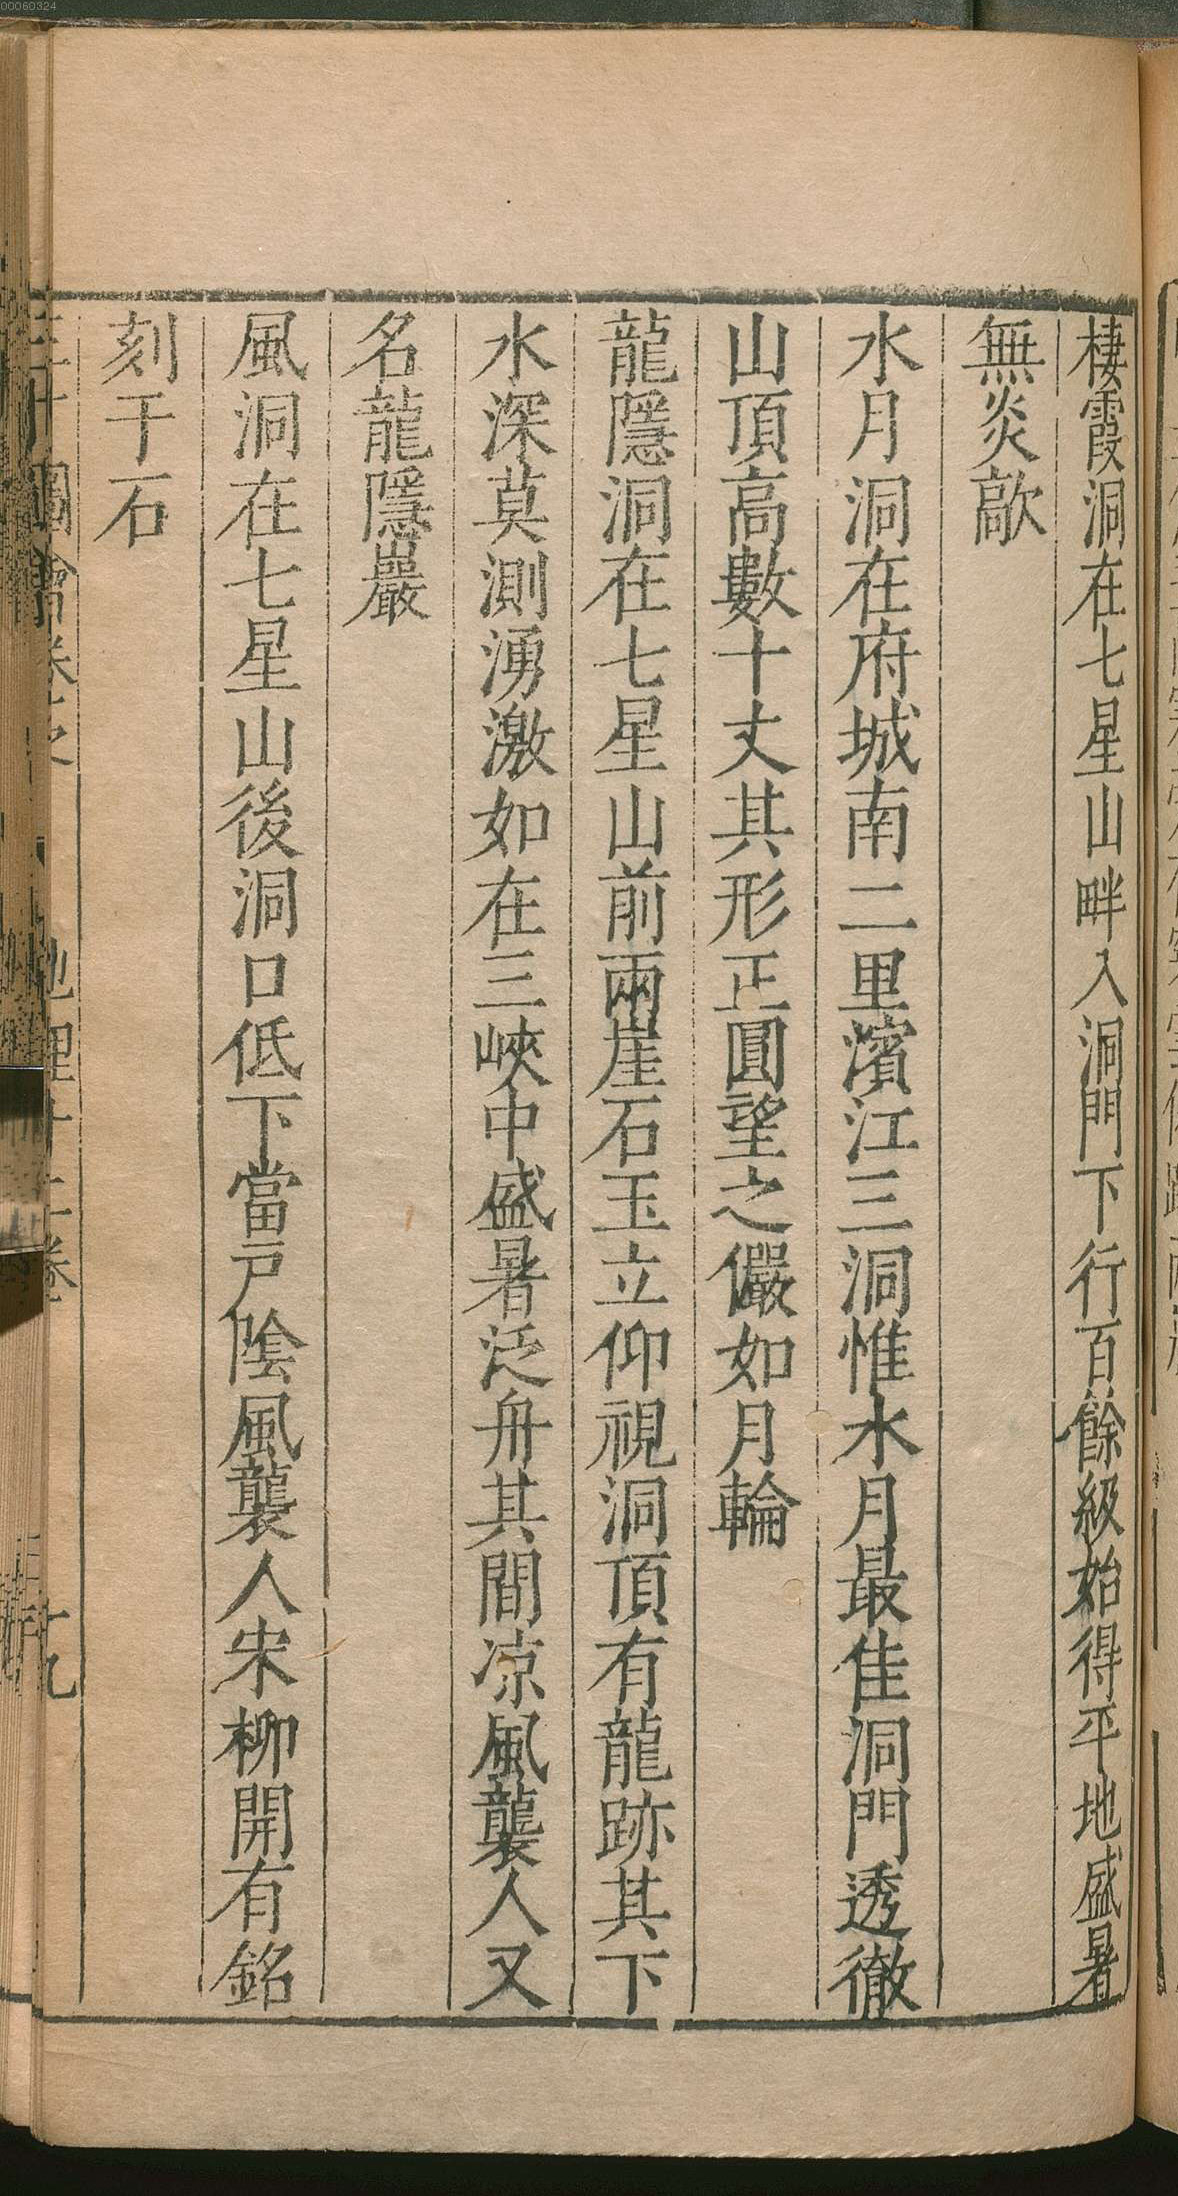 00060324
棲霞洞在七星山畔入洞門下行百餘級始得平地盛暑
無炎歊
水月洞在府城南二里濱江三洞惟水月最佳洞門透徹
山頂高數十丈其形正圓望之儼如月輪
龍隱洞在七星山前兩崖石玉立仰視洞頂有龍跡其下
水深莫測湧激如在三峽中盛暑泛舟其間凉風襲人又
名龍隱巖
風洞在七星山後洞口低下當戶陰風襲人宋柳開有銘
刻于石